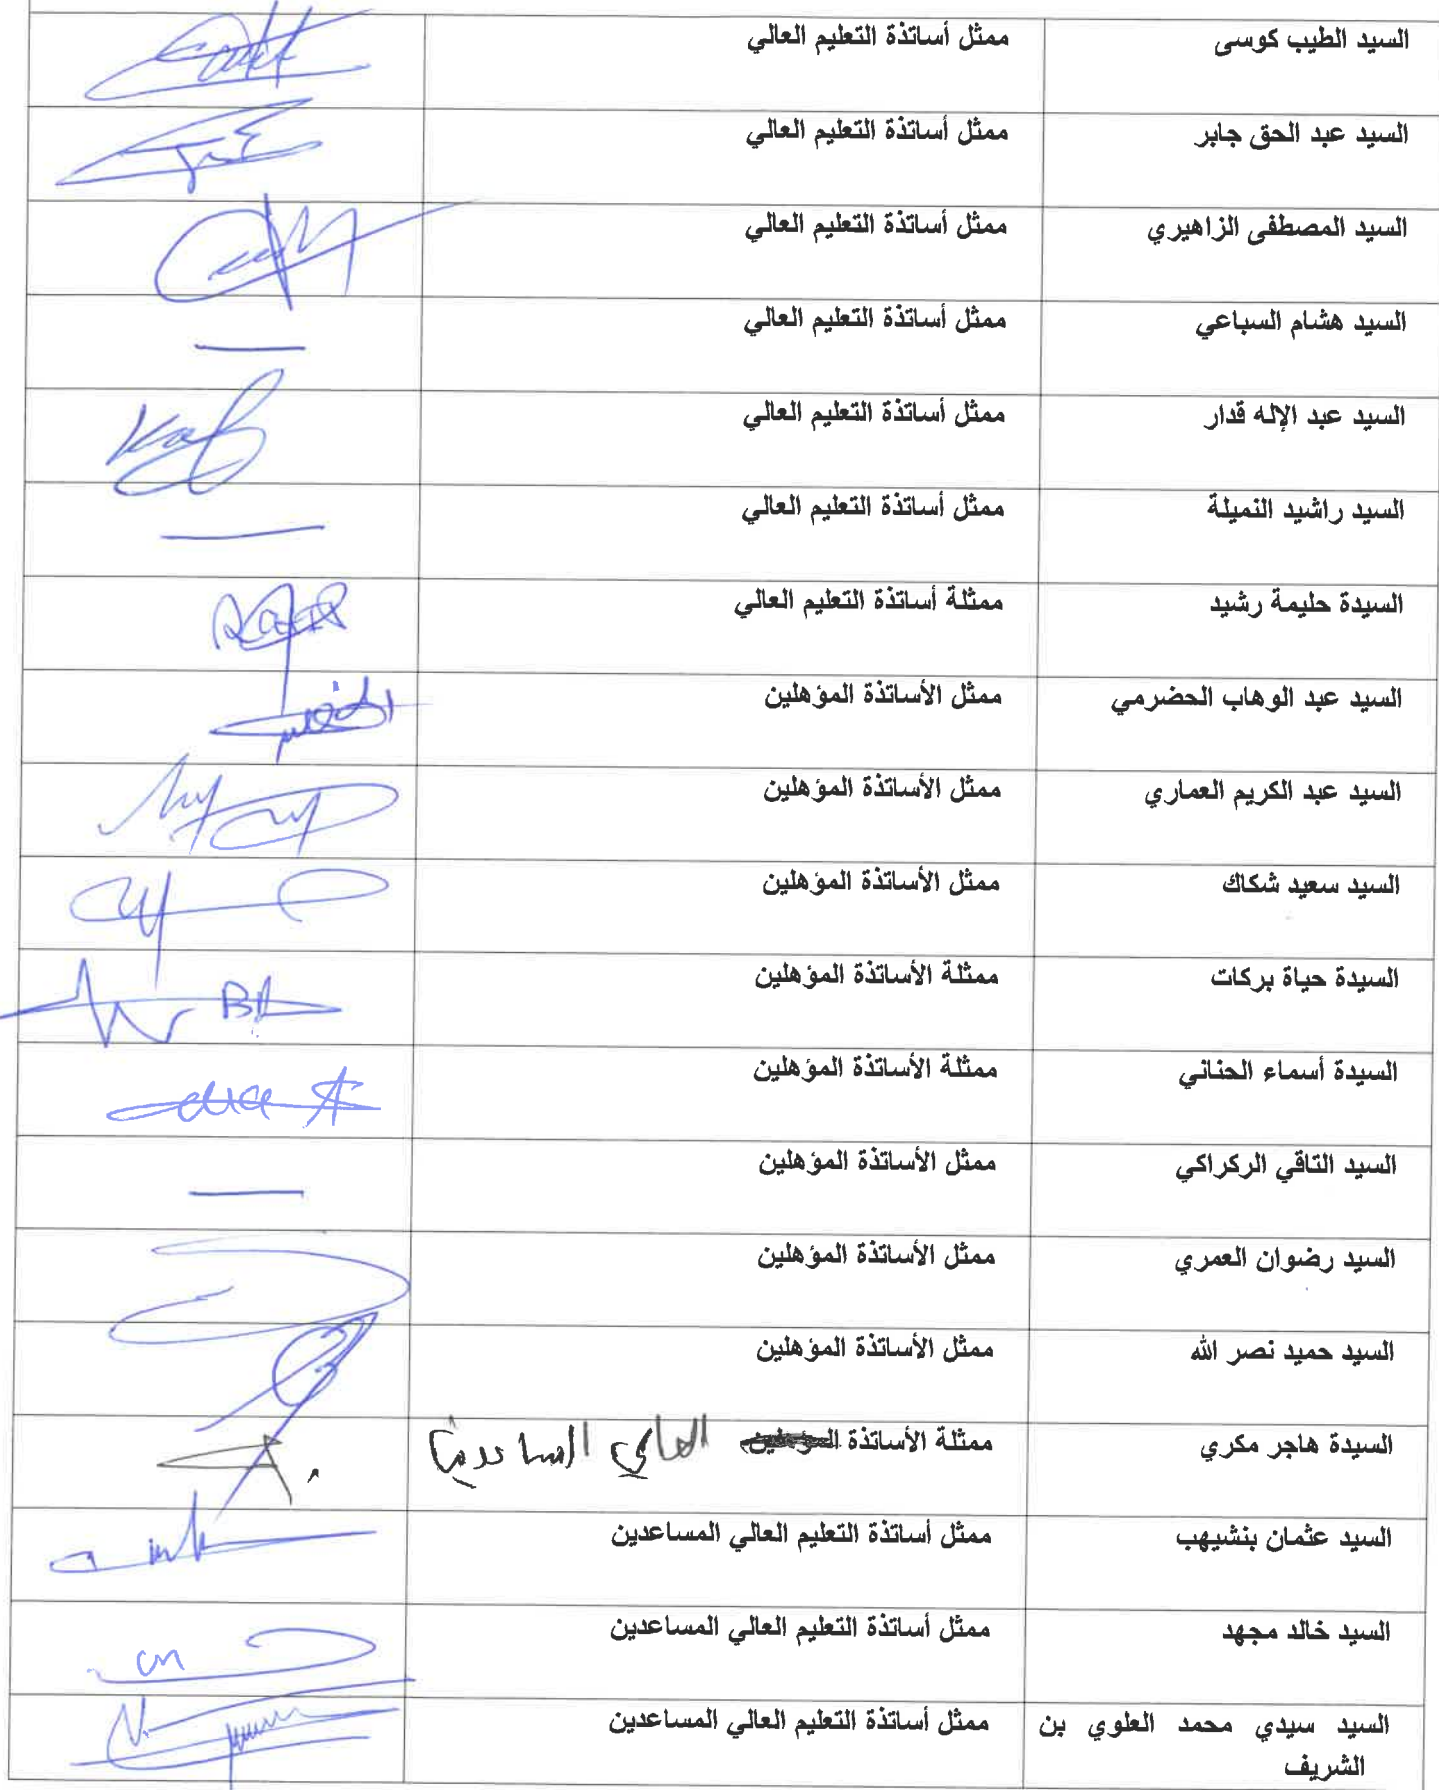 السيد الطيب كوسى ممثل أساتذة التعليم العالي
السيد عبد الحق جابر ممثل أساتذة التعليم العالي
السيد المصطفى الزاهيري ممثل أساتذة التعليم العالي
السيد هشام السباعي ممثل أساتذة التعليم العالي
السيد عبد الإله قدار ممثل أساتذة التعليم العالي
السيد راشيد النميلة ممثل أساتذة التعليم العالي
السيدة حليمة رشيد ممثلة أساتذة التعليم العالي
السيد عبد الوهاب الحضرمي ممثل الأساتذة المؤهلين
السيد عبد الكريم العماري ممثل الأساتذة المؤهلين
السيد سعيد شكاك ممثل الأساتذة المؤهلين
السيدة حياة بركات ممثلة الأساتذة المؤهلين
السيدة أسماء الحناني ممثلة الأساتذة المؤهلين
السيد التاقي الركراكي ممثل الأساتذة المؤهلين
السيد رضوان العمري ممثل الأساتذة المؤهلين
السيد حميد نصر الله ممثل الأساتذة المؤهلين
السيدة هاجر مكري ممثلة الأساتذة المؤهلين العالي المساعدين
السيد عثمان بنشيهب ممثل أساتذة التعليم العالي المساعدين
السيد خالد مجهد ممثل أساتذة التعليم العالي المساعدين
السيد سيدي محمد العلوي بن ممثل أساتذة التعليم العالي المساعدين
الشريف